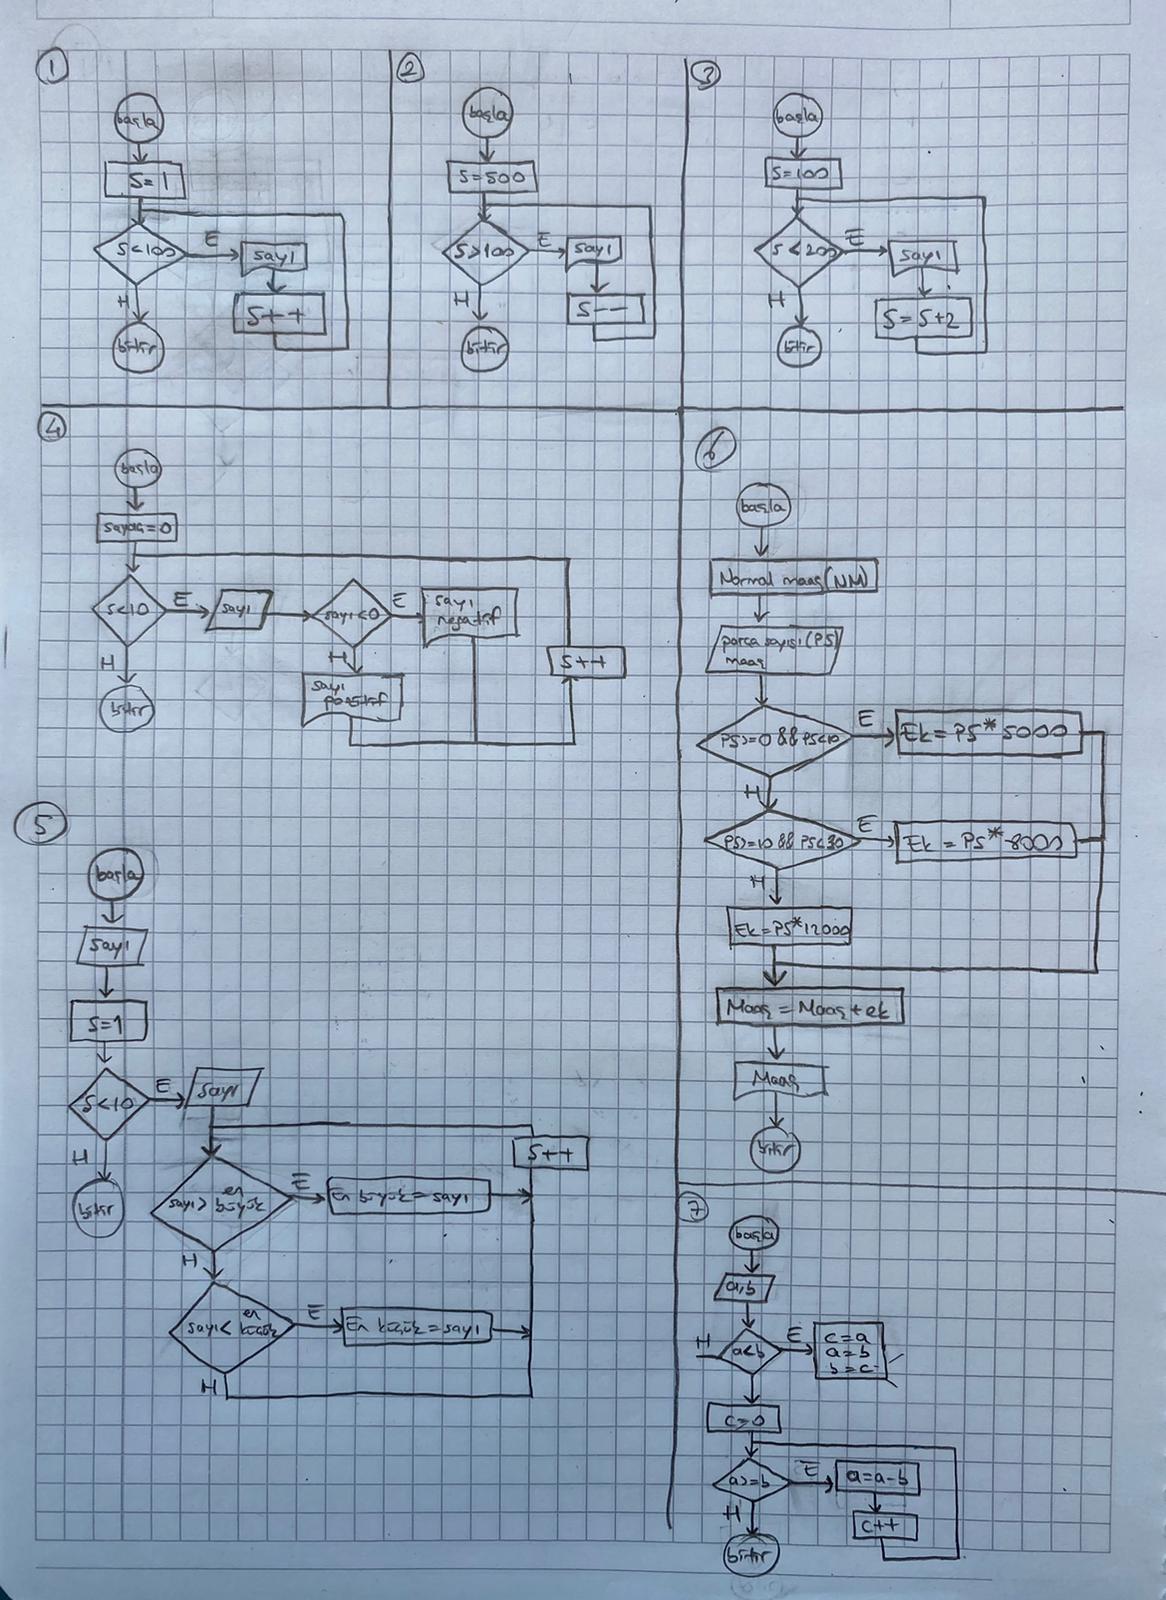 1
başla
S=1
S<100
E
sayı
S++
H
bitir
2
başla
S=500
S>100
E
sayı
S--
H
bitir
3
başla
S=100
S<200
E
sayı
S=S+2
H
bitir
4
başla
sayaç=0
S<10
E
sayı
sayı<0
E
sayı
negatif
H
sayı
pozitif
S++
H
bitir
5
başla
sayı
S=1
S<10
E
sayı
H
bitir
S++
sayı> en
büyük
E
En büyük=sayı
H
sayı< en
küçük
E
En küçük=sayı
H
6
başla
Normal maaş(NM)
parça sayısı(PS)
maaş
PS>=0 && PS<10
E
Ek=PS*5000
H
PS>=10 && PS<30
E
Ek=PS*8000
H
Ek=PS*12000
Maaş=Maaş+ek
Maaş
bitir
7
başla
a,b
H
a<b
E
c=a
a=b
b=c
c=0
a>=b
E
a=a-b
c++
H
bitir